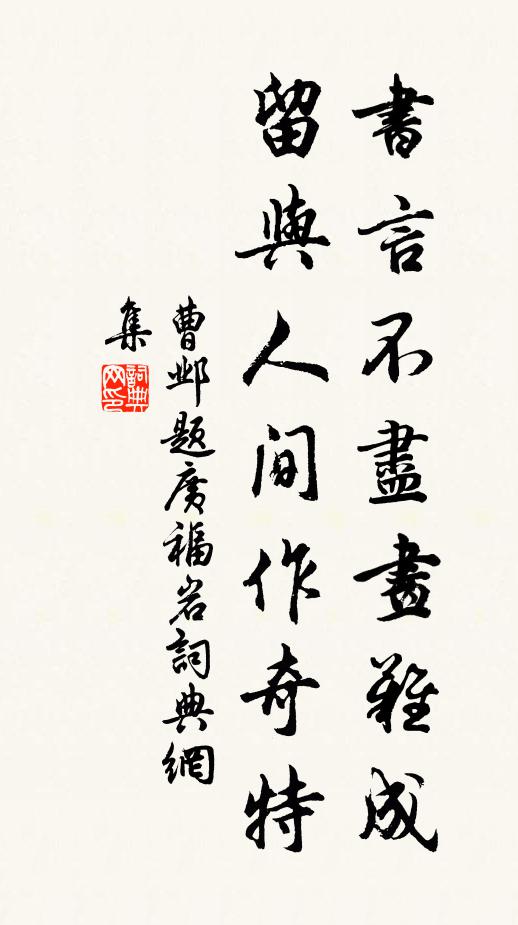 書言不盡畫難成
留與人間作奇特
曹邺题廣福岩詞典網
集
詞典
网印